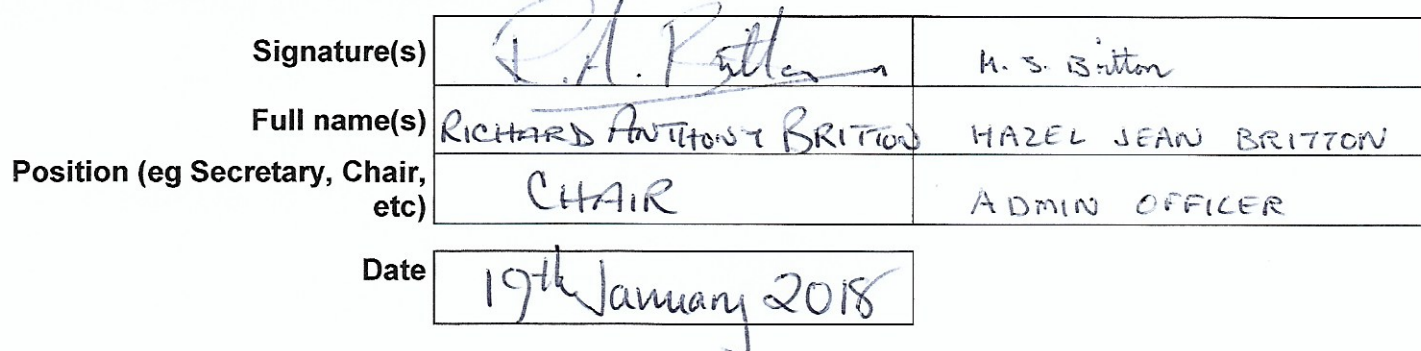 Signature(s) R.A. Britton H. J. Britton
Full name(s) RICHARD ANTHONY BRITTON HAZEL JEAN BRITTON
Position (eg Secretary, Chair,
etc) CHAIR ADMIN OFFICER
Date 19th January 2018